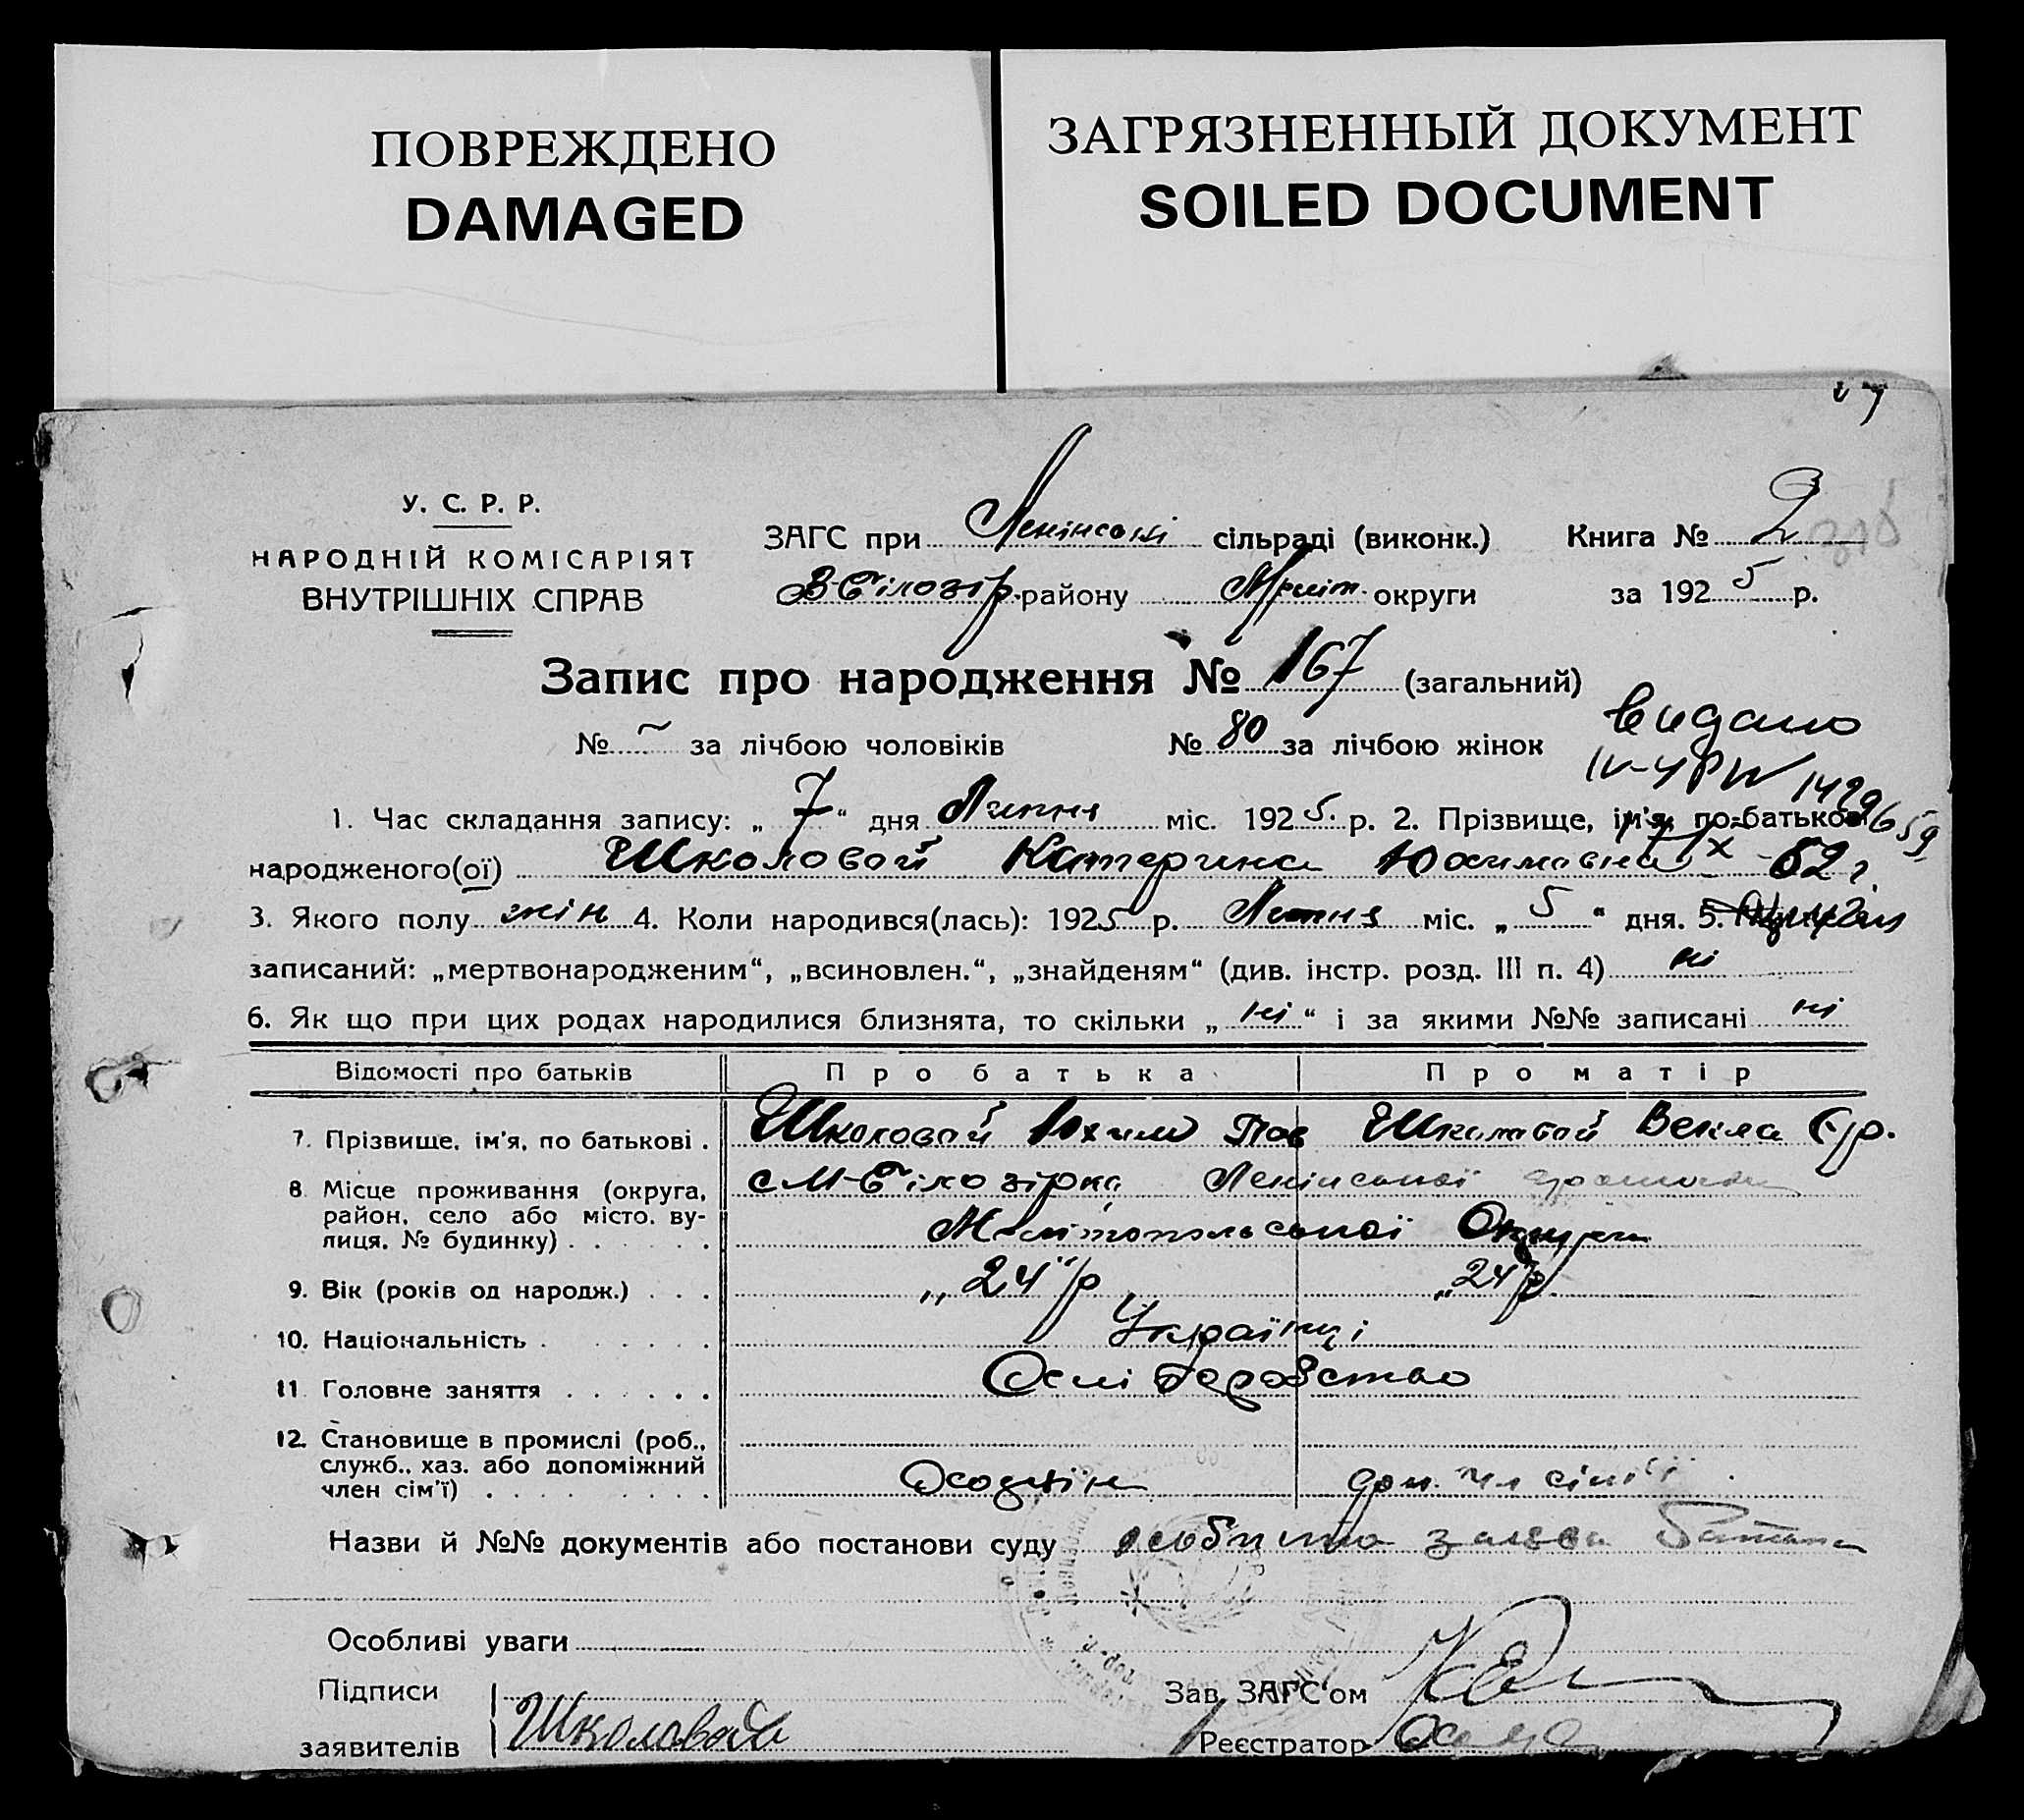 ПОВРЕЖДЕНО
DAMAGED
ЗАГРЯЗНЕННЫЙ ДОКУМЕНТ
SOILED DOCUMENT
У. С. Р. Р.
НАРОДНІЙ КОМІСАРІЯТ
ВНУТРІШНІХ СПРАВ
ЗАГС при Ленінській сільраді (виконк.) Книга № 2
В-Білозір. району Меліт. округи за 1925 р.
Запис про народження № 167 (загальний)
№ ~ за лічбою чоловіків № 80 за лічбою жінок
видано
1. Час складання запису: „ 7 “ дня Липня міс. 1925. р. 2. Прізвище, ім'я, по-батькові
народженого(ої) Школовой Катерина Юхимовна
3. Якого полу жін 4. Коли народився(лась): 1925 р. Липня міс. „ 5 “ дня. 5.
записаний: „мертвонародженим“, „всиновлен.“, „знайденям“ (див. інстр. розд. III п. 4) ні
6. Як що при цих родах народилися близнята, то скільки „ ні “ і за якими №№ записані ні
Відомості про батьків Про батька Про матір
7. Прізвище, ім'я, по батькові . Школовой Юхим Пав Школовой Векла Гр.
8 Місце проживання (округа, район, село або місто, вулиця, № будинку) . . . . . . с М-Білозірка Ленінської громади
Мелітопольської Округи
9. Вік (років од народж.) . . . „24“ р „24“ р.
10. Національність . . . . . . Українці
11 Головне заняття . . . . . . Хліборобство
12. Становище в промислі (роб., служб., хаз. або допоміжний член сім'ї) . . . . . . . . . Хозяїн доп. чл сімї
Назви й №№ документів або постанови суду особиста заява батька
Особливі уваги
Підписи
заявителів Школовой
Зав. ЗАГС'ом
Реєстратор